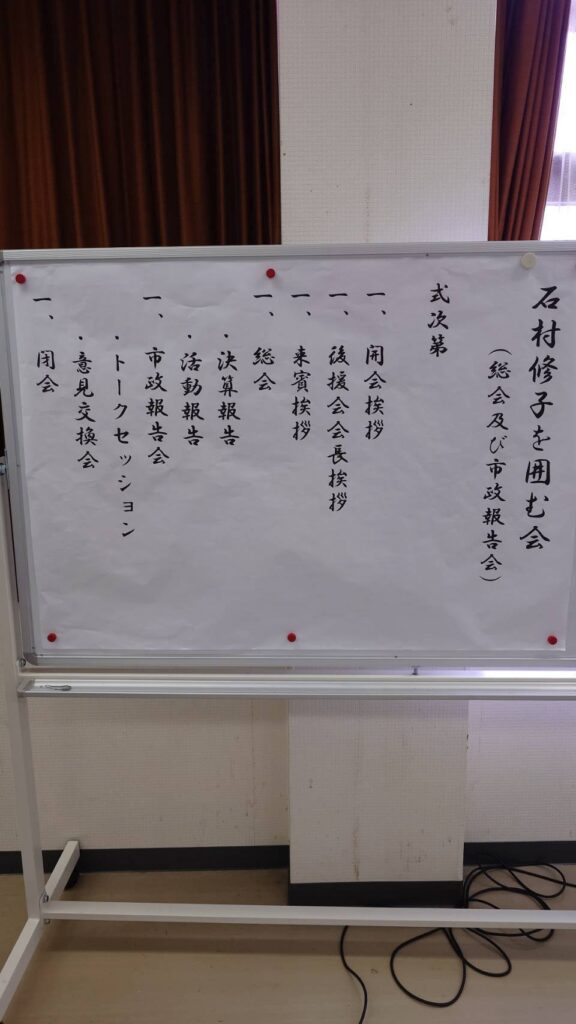 石村修子を囲む会
（総会及び市政報告会）
式次第
一、開会挨拶
一、後援会会長挨拶
一、来賓挨拶
一、総会
・決算報告
・活動報告
一、市政報告会
・トークセッション
・意見交換会
一、閉会